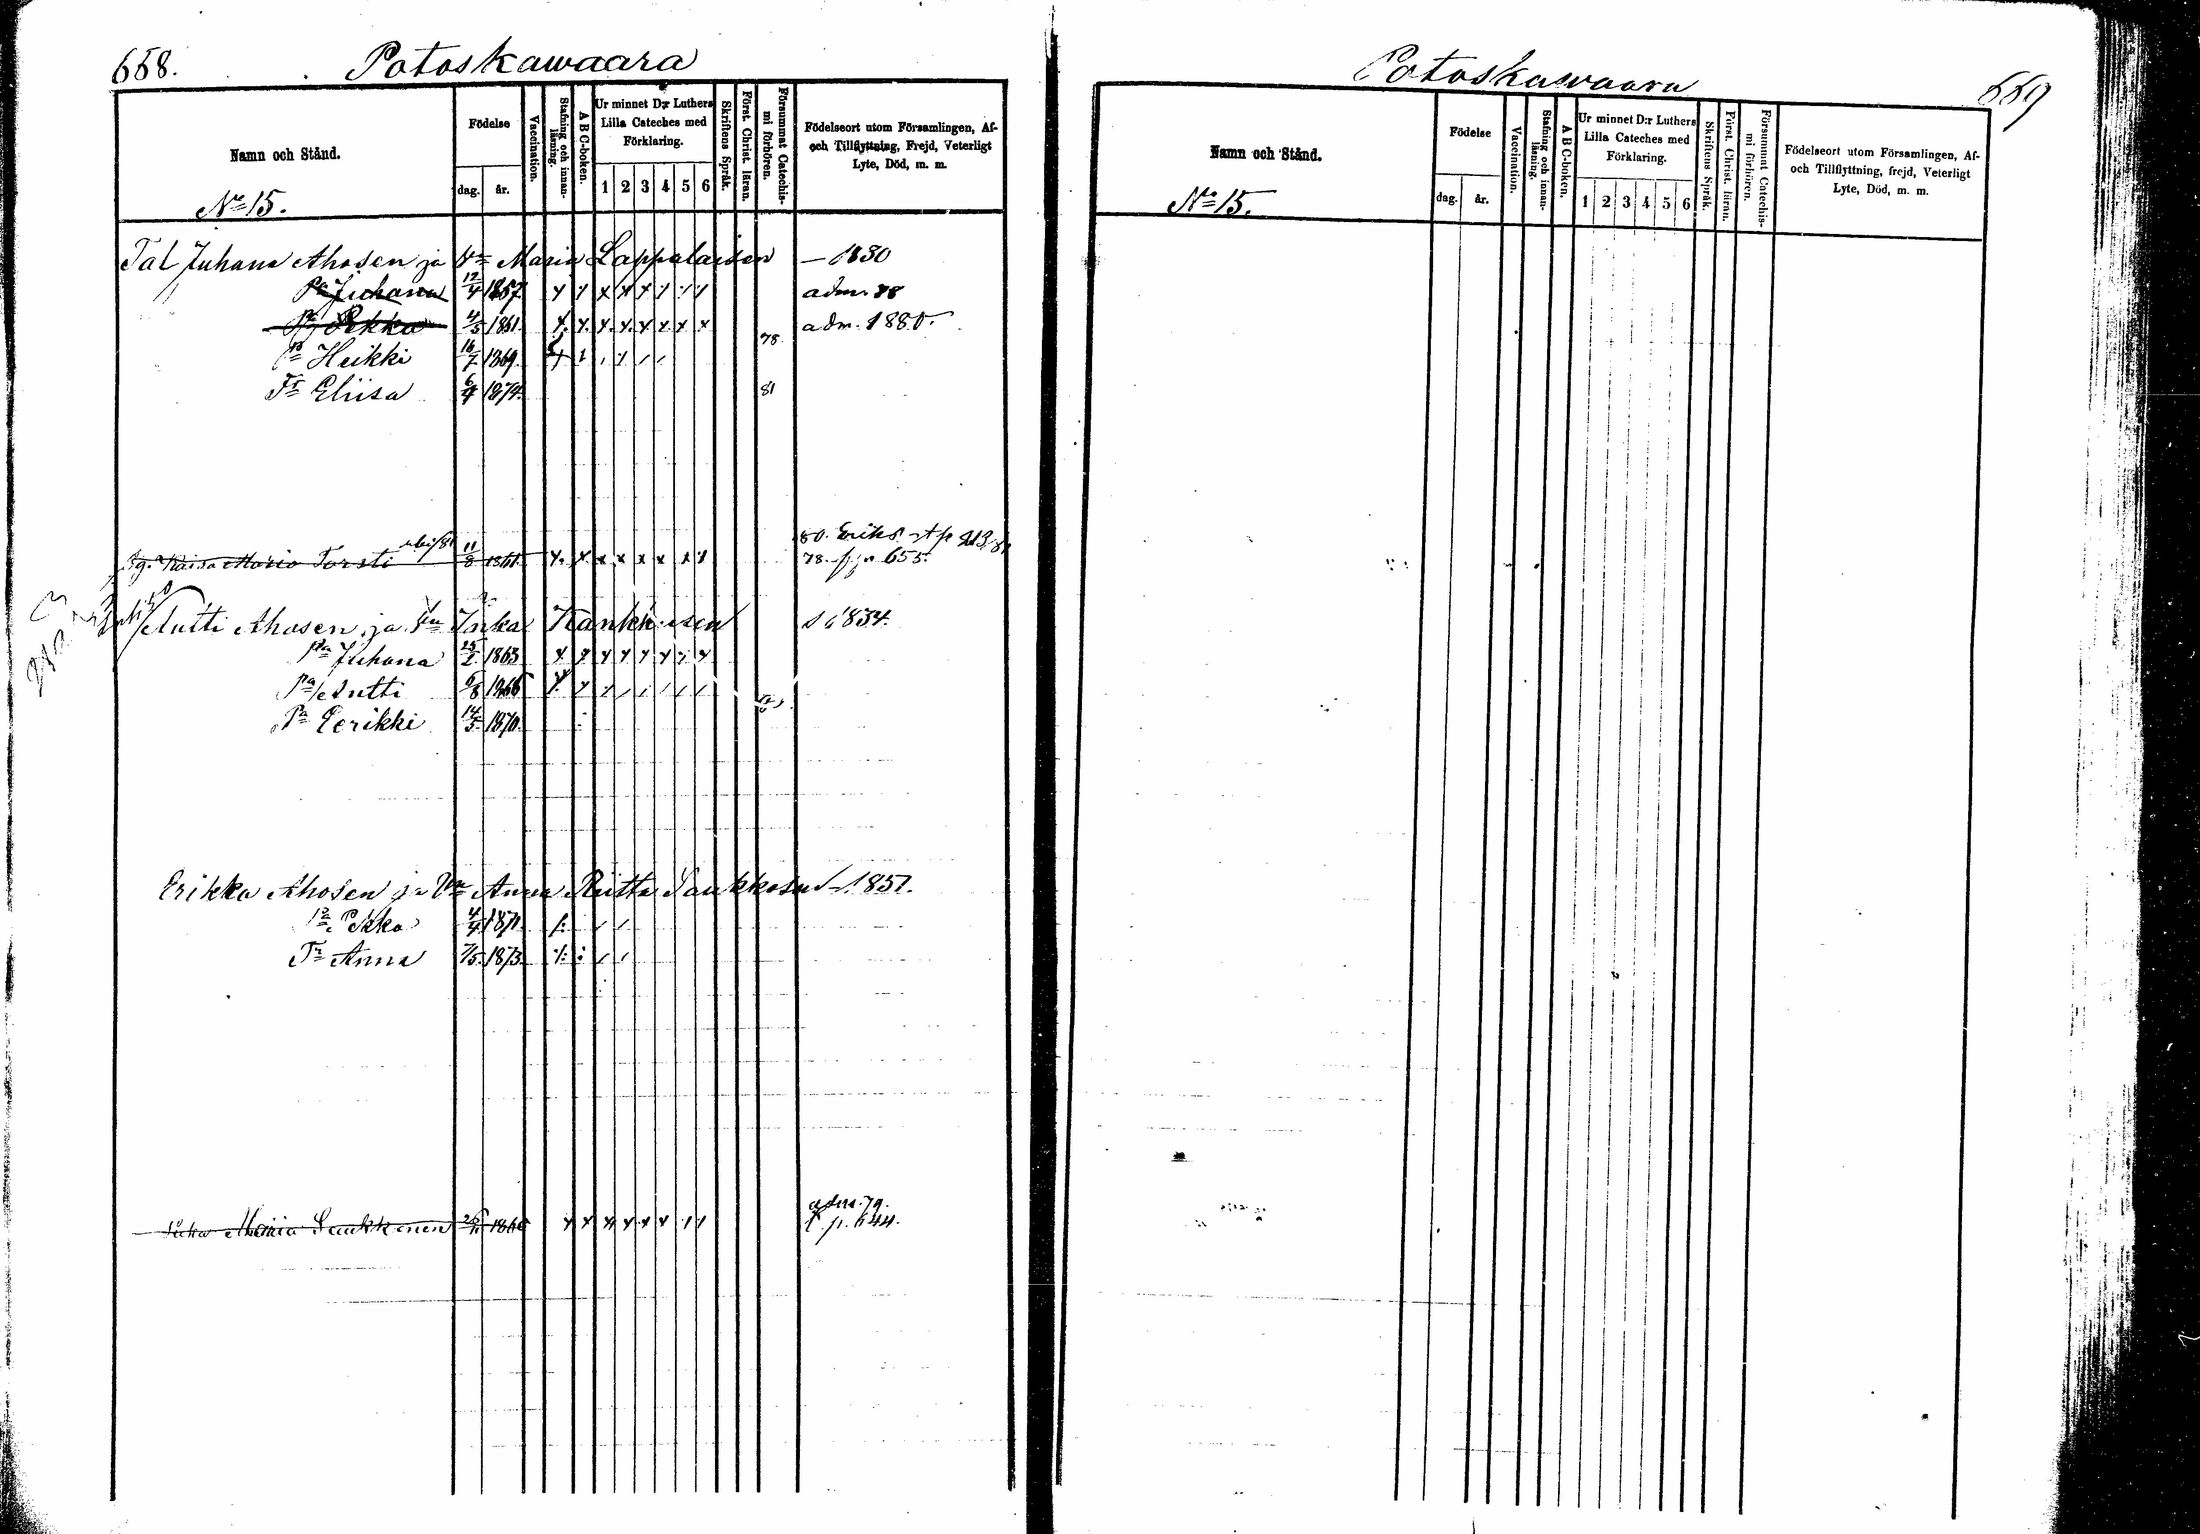 658.
Potoskawaara
Namn och Stånd.
No 15.
Födelse
dag.
år.
Vaccination.
Stafning och innanläsning.
A B C-boken.
Ur minnet D:r Luthers
Lilla Cateches med
Förklaring.
1 2 3 4 5 6
Skriftens Språk.
Först. Christ. läran.
Försummat Catechismi förhören.
Födelseort utom Församlingen, Af-
och Tillflyttning, Frejd, Veterligt
Lyte, Död, m. m.
Tal Juhana Ahosen ja Vn Maria Lappalaisen — 1830
Pa Juhana 12/4 1857 adm. 78
Pa Pekka 4/5 1861 adm. 1880.
Pa Heikki 16/7 1869 78
Tr Eliisa 6/4 1874. 81
80. Eriks.
Maria Torsti 11/8 1861 78. 655.
Antti Ahosen ja Vn Inka 1834.
Pa Juhana 1863
Pa Antti 6/8 1866
Pa Eerikki 14/5 1870
Erikka Ahosen ja Vn Anna Riitta Saukkosen 1851.
Pa Pekka 4/4 1871
Tr Anna 7/5 1873
adm. 79.
Maria Saukkonen p. 644.
Potoskawaara
669
Namn och Stånd.
No 15.
Födelse
dag.
år.
Vaccination.
Stafning och innanläsning.
A B C-boken.
Ur minnet D:r Luthers
Lilla Cateches med
Förklaring.
1 2 3 4 5 6
Skriftens Språk.
Först. Christ. läran.
Försummat Catechismi förhören.
Födelseort utom Församlingen, Af-
och Tillflyttning, frejd, Veterligt
Lyte, Död, m. m.